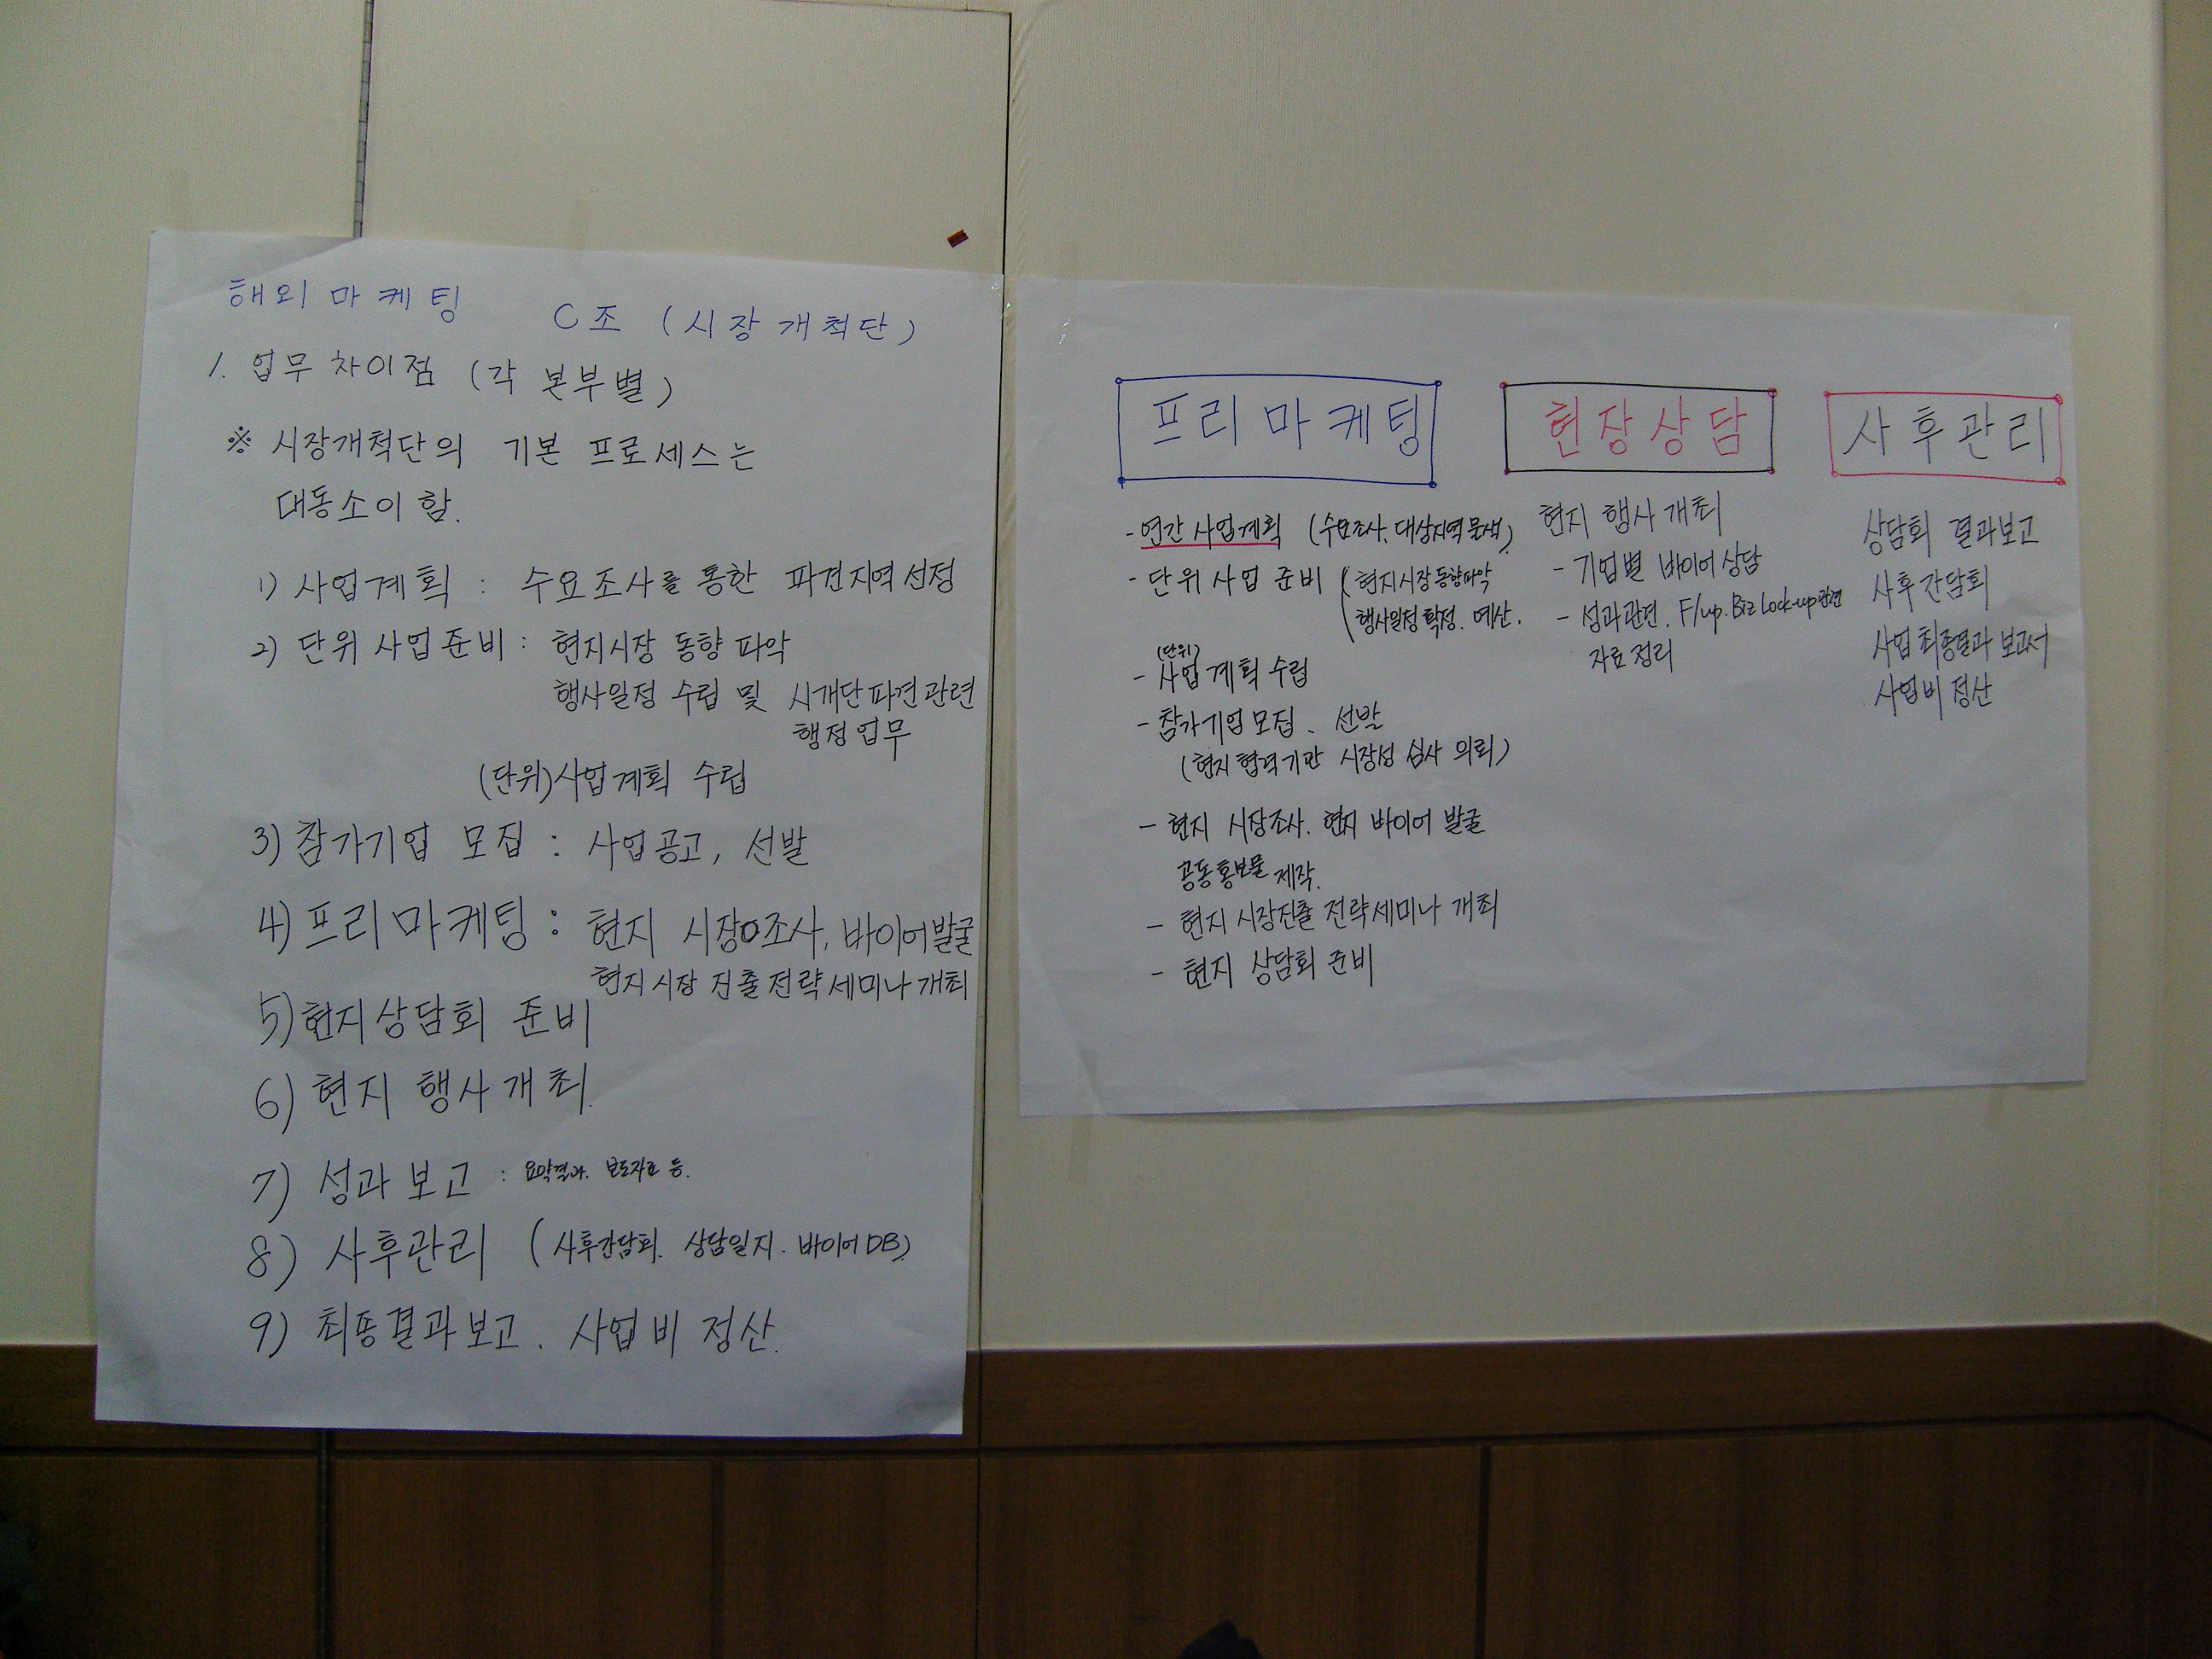 해외 마케팅 C조 (시장개척단)
1. 업무 차이점 (각 본부별)
※ 시장개척단의 기본 프로세스는
대동소이 함.
1) 사업계획 : 수요조사를 통한 파견지역 선정
2) 단위 사업 준비 : 현지시장 동향 파악
행사일정 수립 및 시개단 파견 관련
행정 업무
(단위)사업계획 수립
3) 참가기업 모집 : 사업공고, 선발
4) 프리마케팅 : 현지 시장조사, 바이어발굴
현지시장 진출전략세미나 개최
5) 현지상담회 준비
6) 현지 행사개최.
7) 성과보고 : 요약결과. 보도자료 등.
8) 사후관리 (사후간담회. 상담일지. 바이어DB)
9) 최종결과보고. 사업비 정산.
프리마케팅
- 연간 사업계획 (수요조사. 대상지역 물색)
- 단위 사업 준비 (현지시장 동향파악
행사일정 확정. 예산.
(단위)
- 사업 계획 수립
- 참가기업 모집. 선발
(현지 협력기관 시장성 심사 의뢰)
- 현지 시장조사. 현지 바이어 발굴
공동홍보물 제작.
- 현지 시장진출 전략세미나 개최
- 현지 상담회 준비
현장상담
현지 행사 개최
- 기업별 바이어 상담
- 성과관련. F/up. Biz Lock-up 관련
자료 정리
사후관리
상담회 결과보고
사후 간담회
사업 최종결과 보고서
사업비 정산